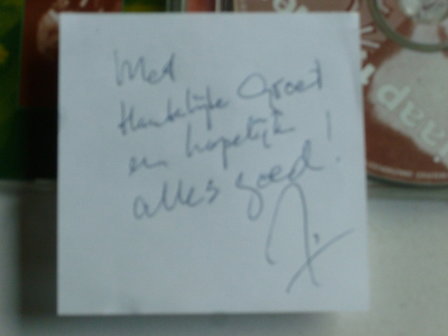 Met
Hartelijke Groet
en hopelijk
alles goed!